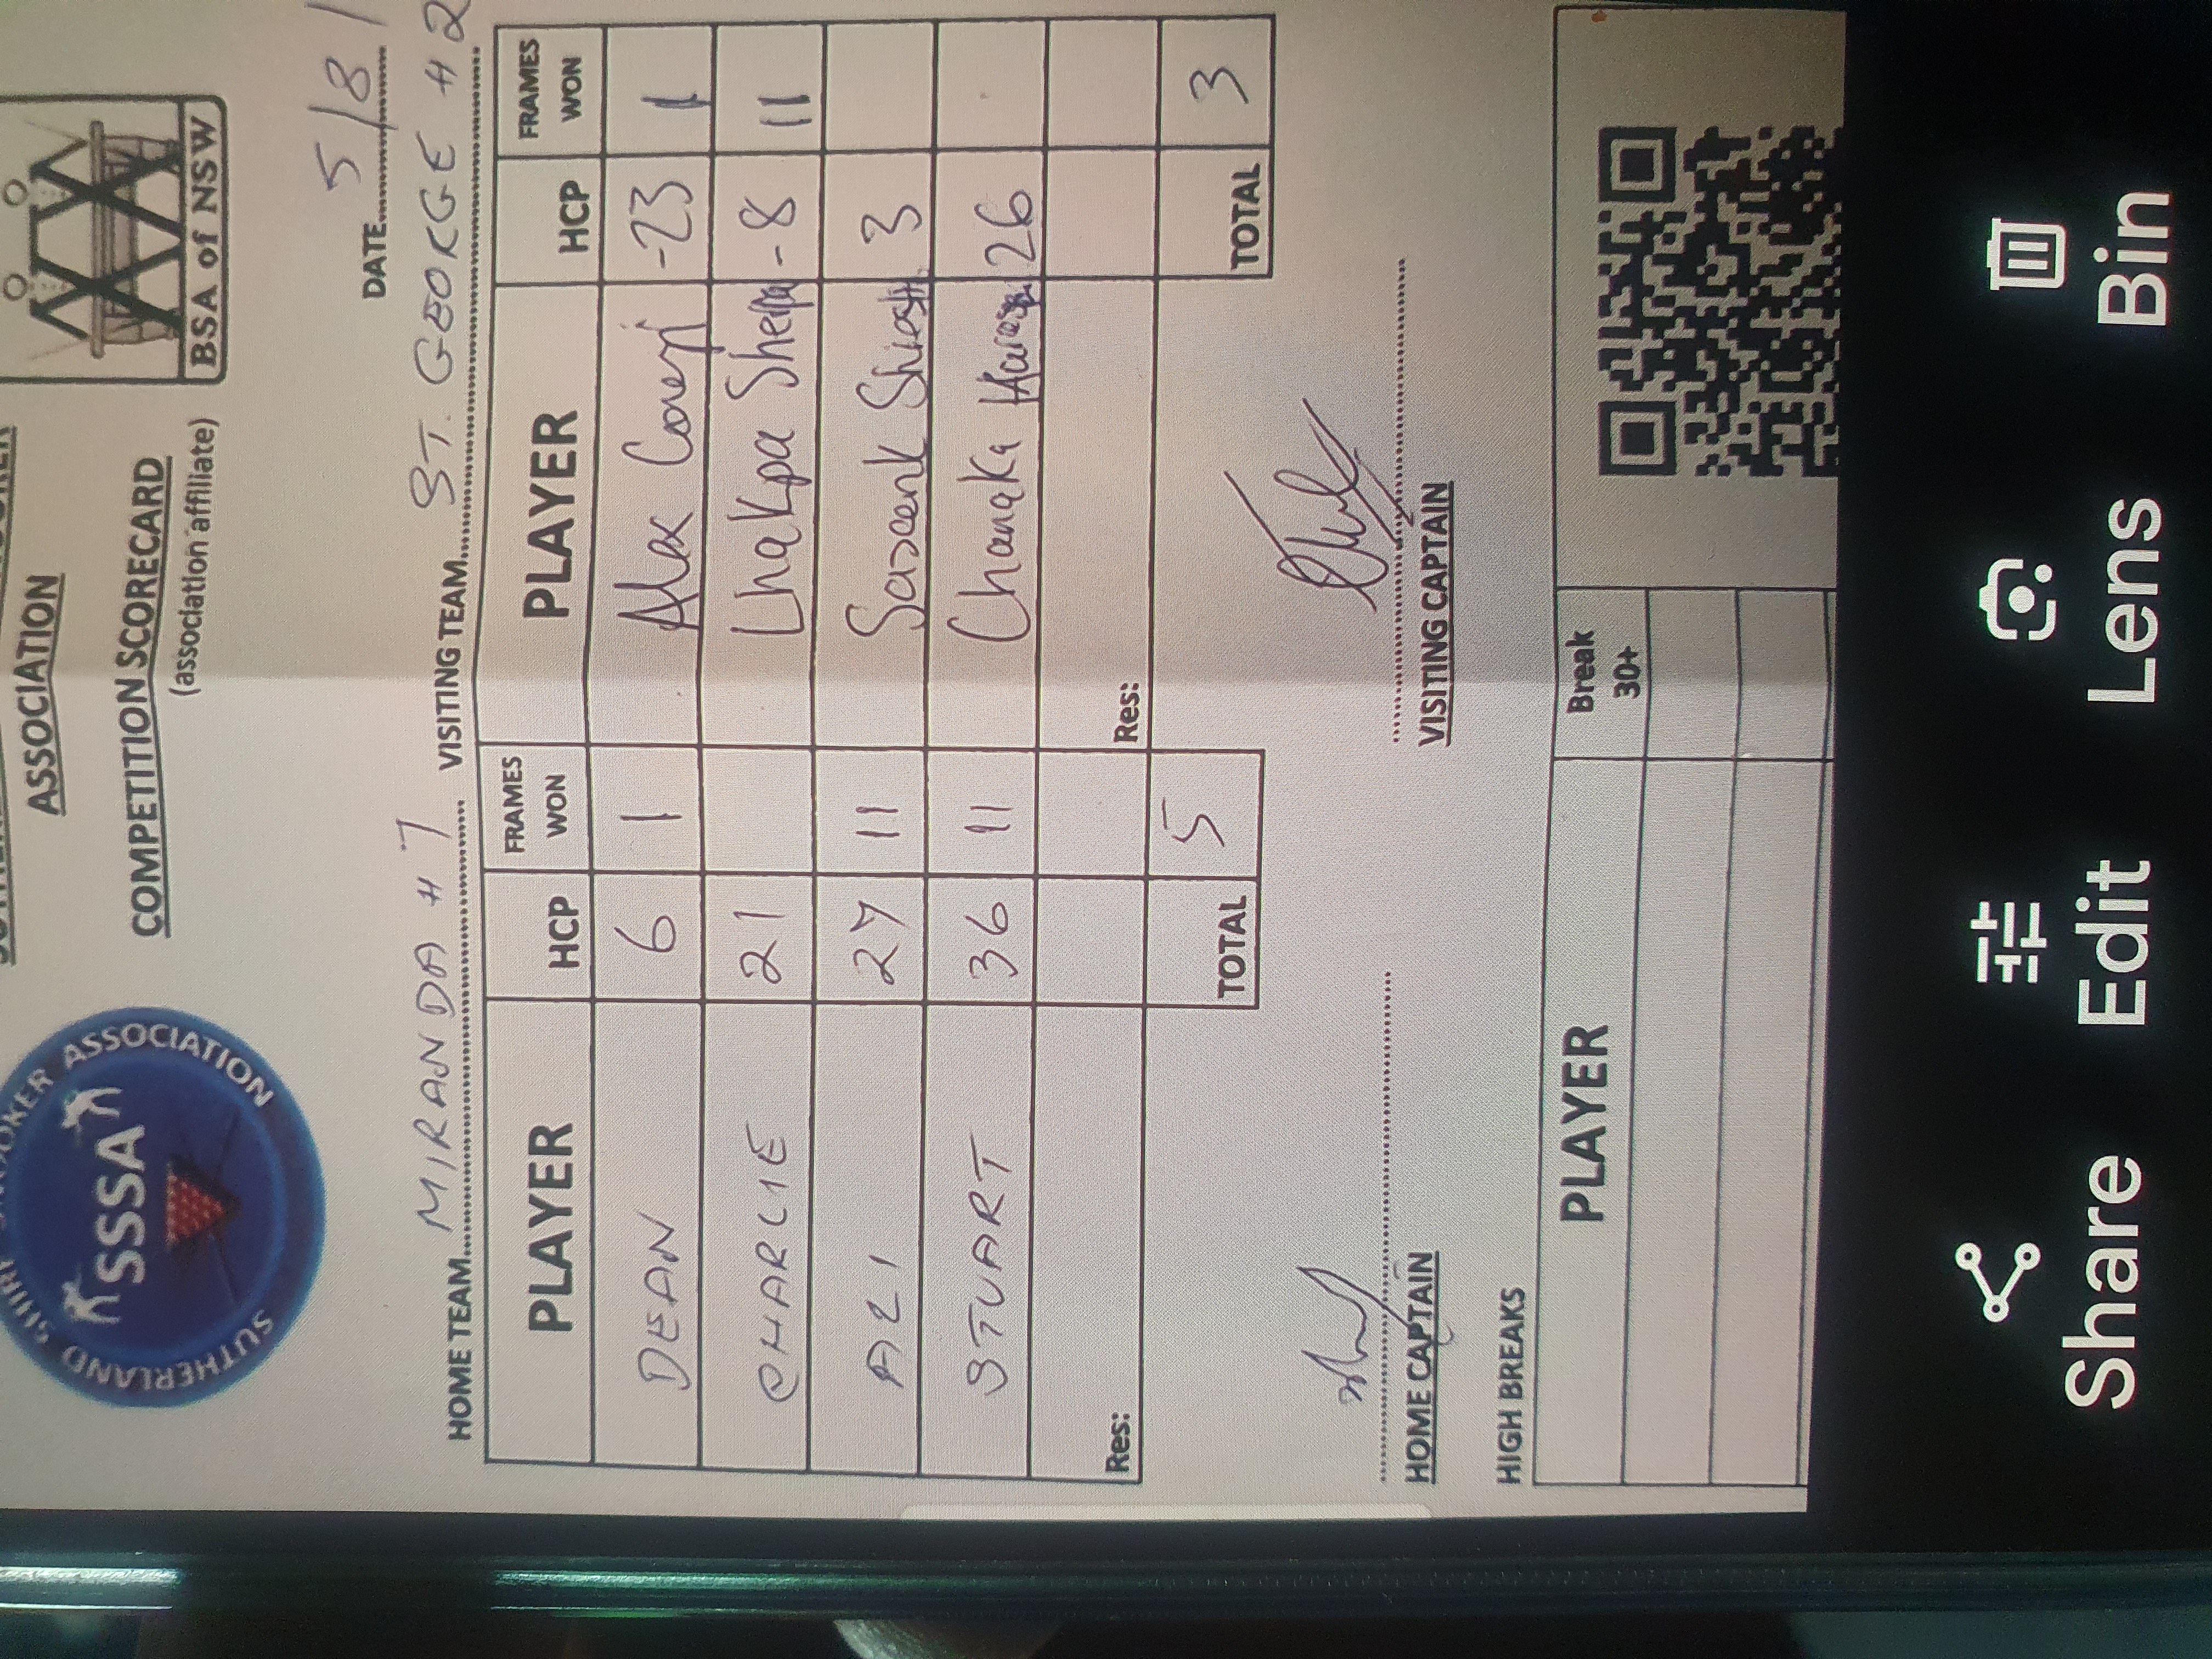 SUTHERLAND SHIRE SNOOKER ASSOCIATION
SSSA
ASSOCIATION
COMPETITION SCORECARD
(association affiliate)
BSA of NSW
DATE 5/8/
HOME TEAM MIRANDA # 7 VISITING TEAM ST. GEORGE # 2
PLAYER HCP FRAMES WON PLAYER HCP FRAMES WON
DEAN 6 1 Alex -23 1
CHARLIE 21 Lhakpa Sherpa -8 11
ALI 27 11 3
STUART 36 11 Chanaka 26
Res: Res:
TOTAL 5 TOTAL 3
HOME CAPTAIN VISITING CAPTAIN
HIGH BREAKS
PLAYER Break 30+
Share Edit Lens Bin